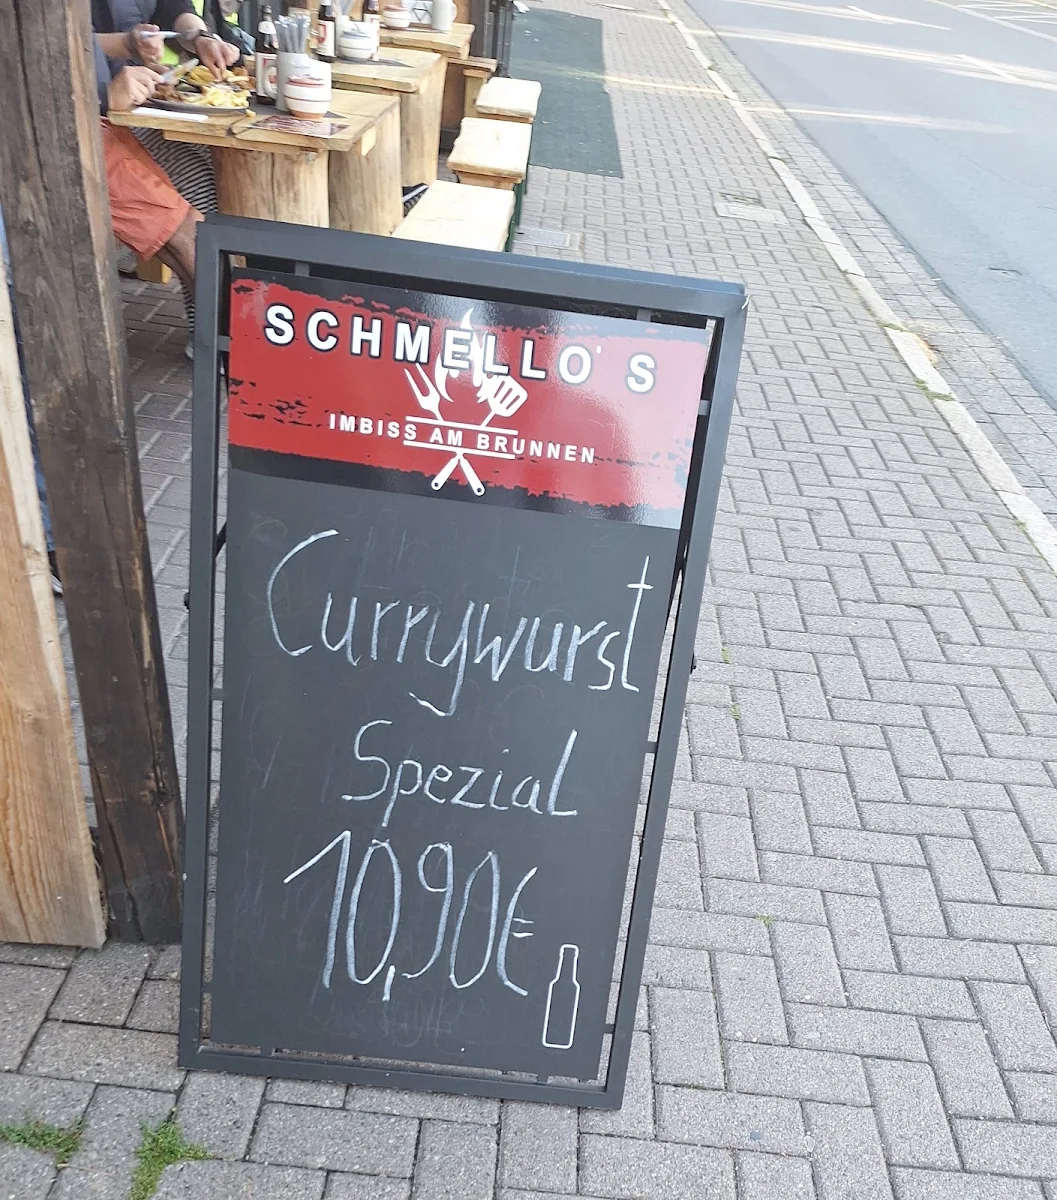 SCHMELLO'S
IMBISS AM BRUNNEN
Currywurst
Spezial
10,90€